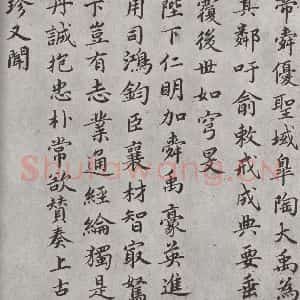 帝舜優聖域皐陶大禹為
其鄰吁俞敕戒成典要垂
覆後世如穹昊
陛下仁明加舜禹豪英進
用司鴻鈞臣襄材智㝡駑
下豈有志業通經綸獨是
丹誠抱忠朴常欲贊奏上古
珍又聞
Shufawang.CN